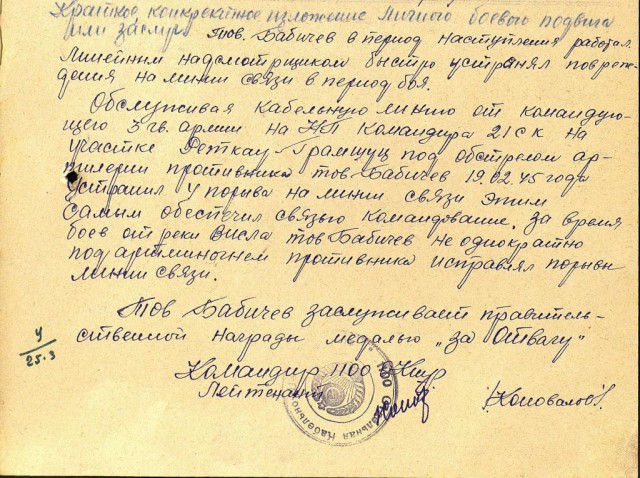 Краткое конкректное изложение личного боевого подвига
или заслуг Тов. Бабичев в период наступления работал
Линейным надсмотрщиком быстро устранял повреж-
дения на линии связи в период боя.
Обслуживая кабельную линию от командую-
щего 3 гв. армии на НП Командира 21 с к на
участке Реткау-Грамшуц под обстрелом ар-
тилерии противника тов. Бабичев 19.02.45 года
Устранил 4 порыва на линии связи этим
самым обеспечил связью командование. За время
боев от реки Висла тов Бабичев не однократно
под артминогнем противника исправлял порывы
линии связи.
Тов Бабичев заслуживает правитель-
ственной награды медалью „За Отвагу"
4/25.3
Командир 1100
Лейтенант /Коновалов/